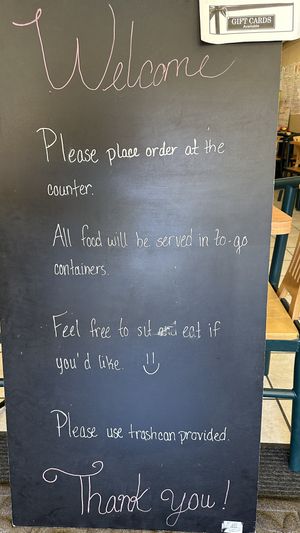 GIFT CARDS
Available
Welcome
Please place order at the
counter.
All food will be served in to-go
containers.
Feel free to sit and eat if
you'd like.
Please use trashcan provided.
Thank you!